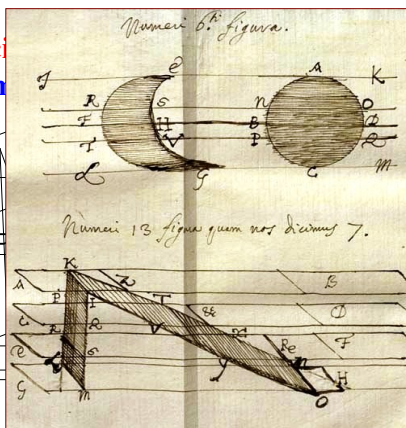 Numeri 6.ti figura.
C A
I K
R S N O
F H B D
T V P Q
L G C M
Numeri 13 figura quem nos dicimus 7.
K
Z B
A P I T &
D
V
R X Re F
e S Y n
H
G M O